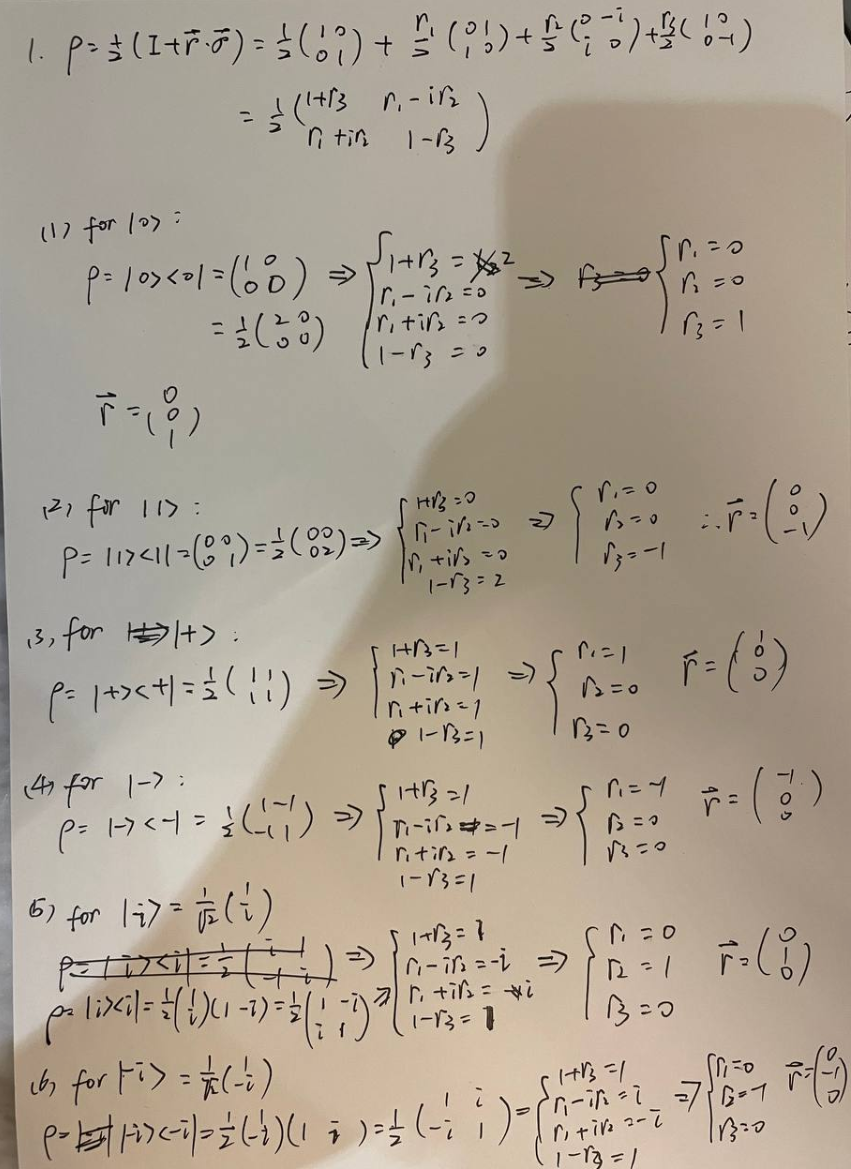 1. ρ = 1/2 (I + r⃗·σ⃗) = 1/2 (1 0; 0 1) + r₁/2 (0 1; 1 0) + r₂/2 (0 -i; i 0) + r₃/2 (1 0; 0 -1)
= 1/2 (1+r₃ r₁-ir₂; r₁+ir₂ 1-r₃)
(1) for |0>:
ρ = |0><0| = (1 0; 0 0) ⇒ { 1+r₃ = 2; r₁-ir₂ = 0; r₁+ir₂ = 0; 1-r₃ = 0 ⇒ { r₁ = 0; r₂ = 0; r₃ = 1
= 1/2 (2 0; 0 0)
r⃗ = (0; 0; 1)
(2) for |1>:
ρ = |1><1| = (0 0; 0 1) = 1/2 (0 0; 0 2) ⇒ { 1+r₃ = 0; r₁-ir₂ = 0; r₁+ir₂ = 0; 1-r₃ = 2 ⇒ { r₁ = 0; r₂ = 0; r₃ = -1 ∴ r⃗ = (0; 0; -1)
(3) for |+>:
ρ = |+><+| = 1/2 (1 1; 1 1) ⇒ { 1+r₃ = 1; r₁-ir₂ = 1; r₁+ir₂ = 1; 1-r₃ = 1 ⇒ { r₁ = 1; r₂ = 0; r₃ = 0 r⃗ = (1; 0; 0)
(4) for |->:
ρ = |-><-| = 1/2 (1 -1; -1 1) ⇒ { 1+r₃ = 1; r₁-ir₂ = -1; r₁+ir₂ = -1; 1-r₃ = 1 ⇒ { r₁ = -1; r₂ = 0; r₃ = 0 r⃗ = (-1; 0; 0)
(5) for |i> = 1/√2 (1; i)
⇒ { 1+r₃ = 1; r₁-ir₂ = -i; r₁+ir₂ = i; 1-r₃ = 1 ⇒ { r₁ = 0; r₂ = 1; r₃ = 0 r⃗ = (0; 1; 0)
ρ = |i><i| = 1/2 (1; i)(1 -i) = 1/2 (1 -i; i 1) ⇒
(6) for |-i> = 1/√2 (1; -i)
ρ = |-i><-i| = 1/2 (1; -i)(1 i) = 1/2 (1 i; -i 1) = { 1+r₃ = 1; r₁-ir₂ = i; r₁+ir₂ = -i; 1-r₃ = 1 ⇒ { r₁ = 0; r₂ = -1; r₃ = 0 r⃗ = (0; -1; 0)